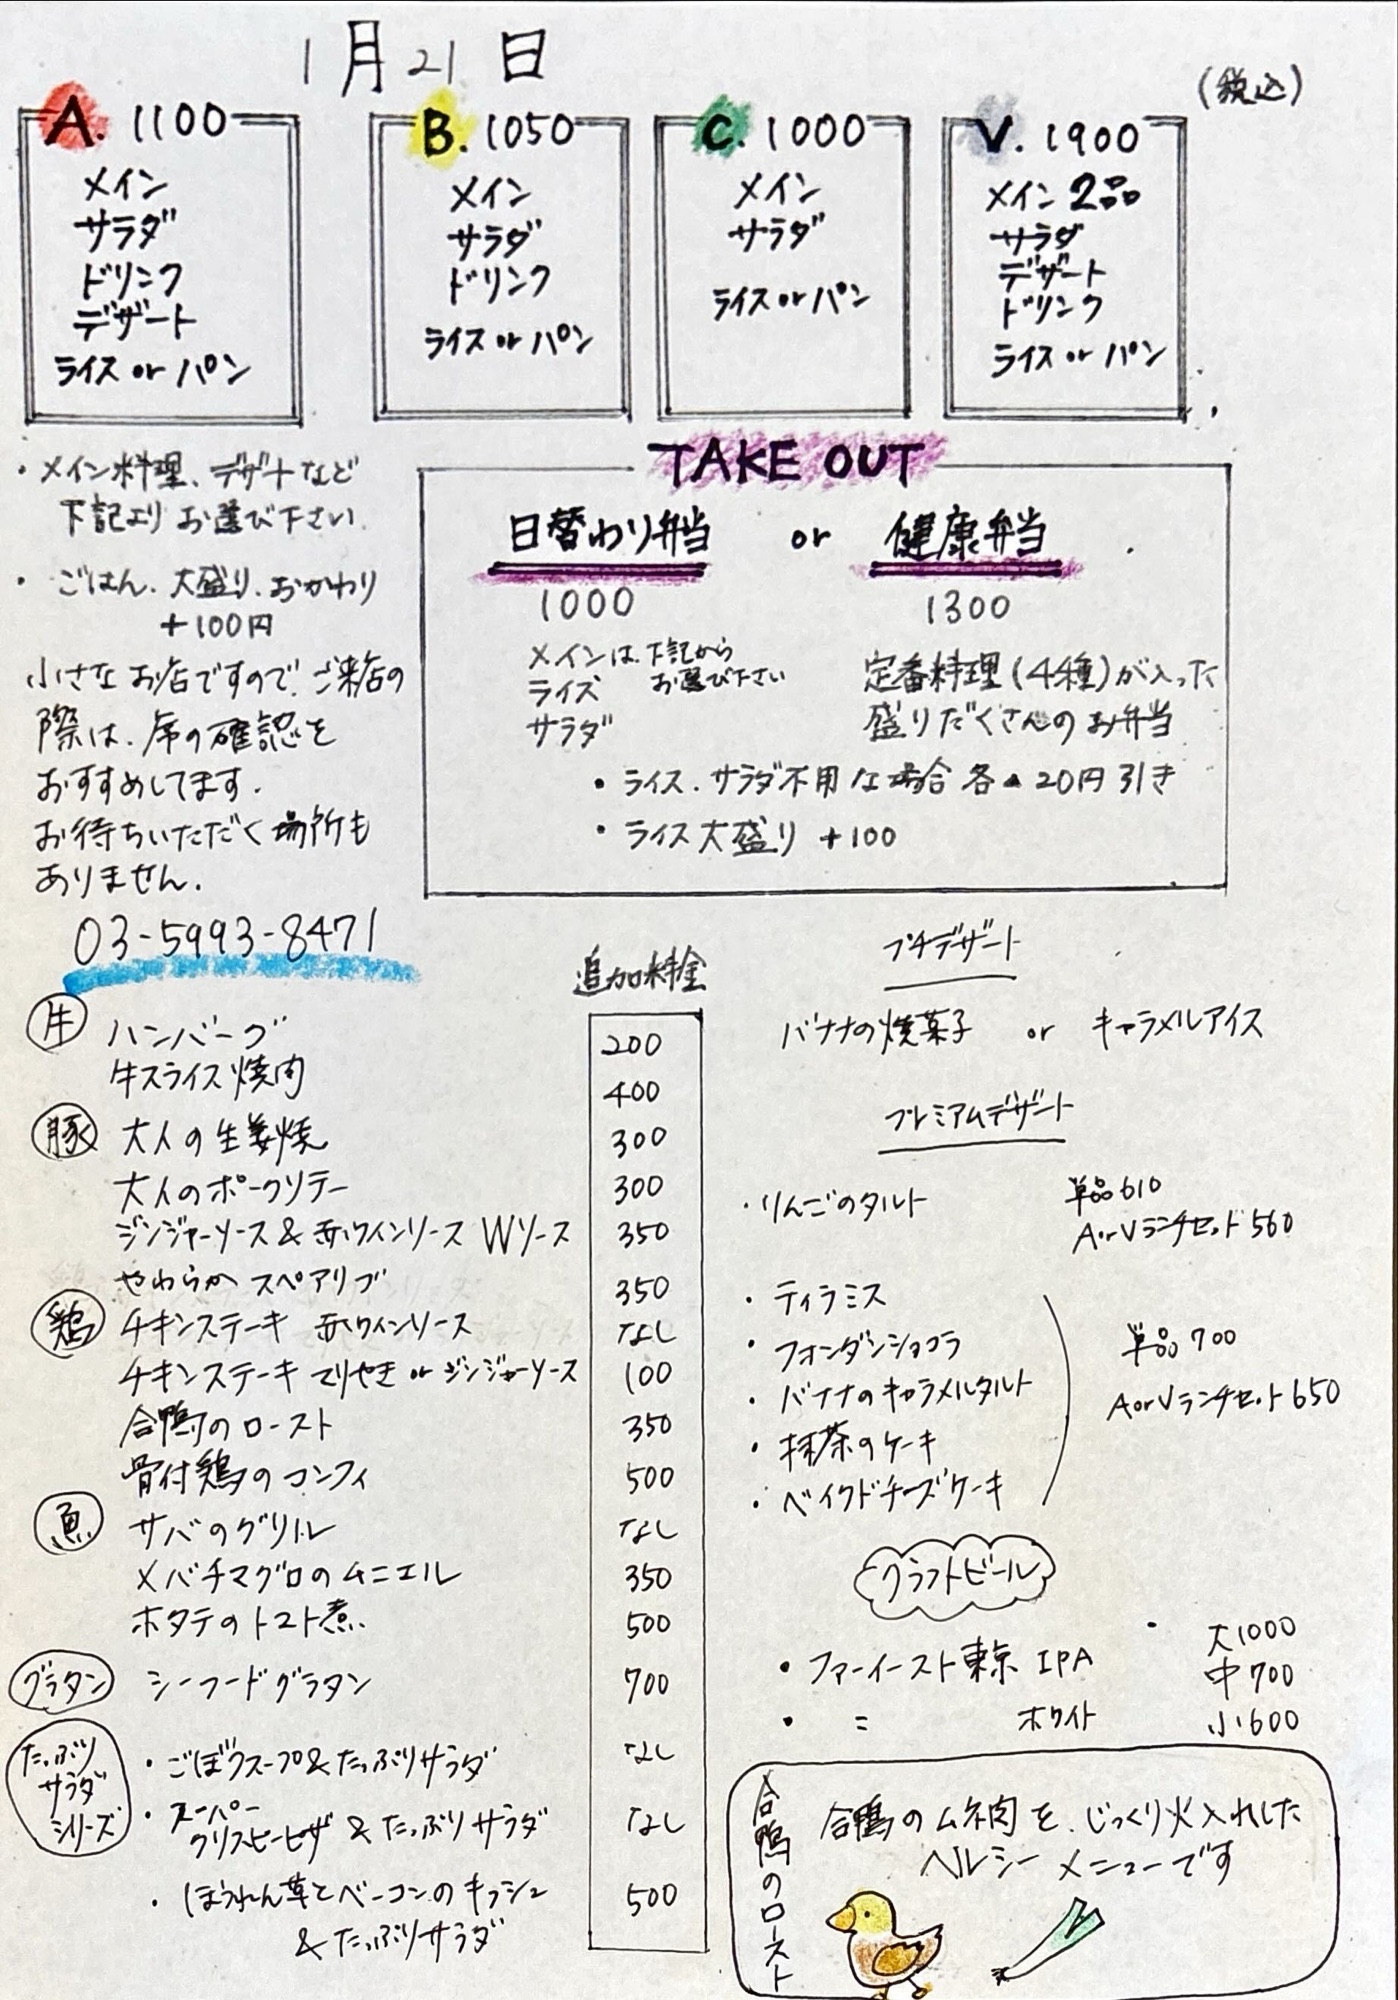 1月21日
(税込)
A. 1100
メイン
サラダ
ドリンク
デザート
ライス or パン
B. 1050
メイン
サラダ
ドリンク
ライス or パン
C. 1000
メイン
サラダ
ライス or パン
V. 1900
メイン 2品
サラダ
デザート
ドリンク
ライス or パン
・メイン料理、デザートなど
下記より お選び下さい.
・ごはん、大盛り、おかわり
+100円
小さなお店ですので、ご来店の
際は、席の確認を
おすすめしてます.
お待ちいただく場所も
ありません.
03-5993-8471
TAKE OUT
日替わり弁当 or 健康弁当
1000
メインは、下記から
お選び下さい
ライス
サラダ
1300
定番料理(4種)が入った
盛りだくさんのお弁当
・ライス、サラダ不用な場合 各▲20円引き
・ライス大盛り +100
追加料金
牛 ハンバーグ 200
牛スライス焼肉 400
豚 大人の生姜焼 300
大人のポークソテー 300
ジンジャーソース & 赤ワインソース Wソース 350
やわらか スペアリブ 350
鶏 チキンステーキ 赤ワインソース なし
チキンステーキ てりやき or ジンジャーソース 100
合鴨のロースト 350
骨付鶏のコンフィ 500
魚 サバのグリル なし
メバチマグロのムニエル 350
ホタテのトマト煮. 500
グラタン シーフードグラタン 700
たっぷり
サラダ
シリーズ
・ごぼうスープ&たっぷりサラダ なし
・スーパー
クリスピーピザ & たっぷりサラダ なし
・ほうれん草とベーコンのキッシュ 500
& たっぷりサラダ
プチデザート
バナナの焼菓子 or キャラメルアイス
プレミアムデザート
・りんごのタルト 単品610
AorVランチセット 560
・ティラミス
・フォンダンショコラ
・バナナのキャラメルタルト
・抹茶のケーキ
・ベイクドチーズケーキ
単品700
AorVランチセット 650
クラフトビール
・ファーイースト東京 IPA
・ 〃 ホワイト
大1000
中700
小600
合鴨のロースト
合鴨のムネ肉を、じっくり火入れした
ヘルシーメニューです